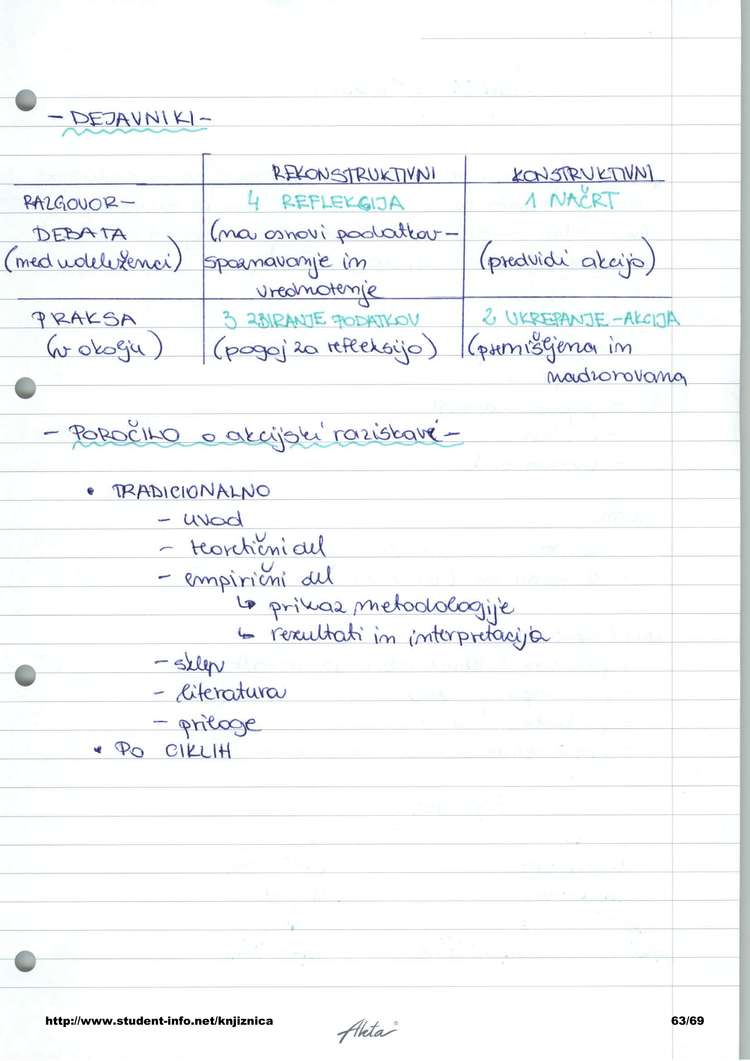 - DEJAVNIKI -
REKONSTRUKTIVNI KONSTRUKTIVNI
RAZGOVOR- 4 REFLEKSIJA 1 NAČRT
DEBATA (na osnovi podatkov-
(med udeleženci) spoznavanje in (predvidi akcijo)
vrednotenje
PRAKSA 3 ZBIRANJE PODATKOV 2 UKREPANJE-AKCIJA
(v okolju) (pogoj za refleksijo) (premišljena in
nadzorovana
- POROČILO o akcijski raziskavi -
• TRADICIONALNO
- uvod
- teoretični del
- empirični del
↳ prikaz metodologije
↳ rezultati in interpretacija
- sklep
- literatura
- priloge
• PO CIKLIH
http://www.student-info.net/knjiznica Akta 63/69